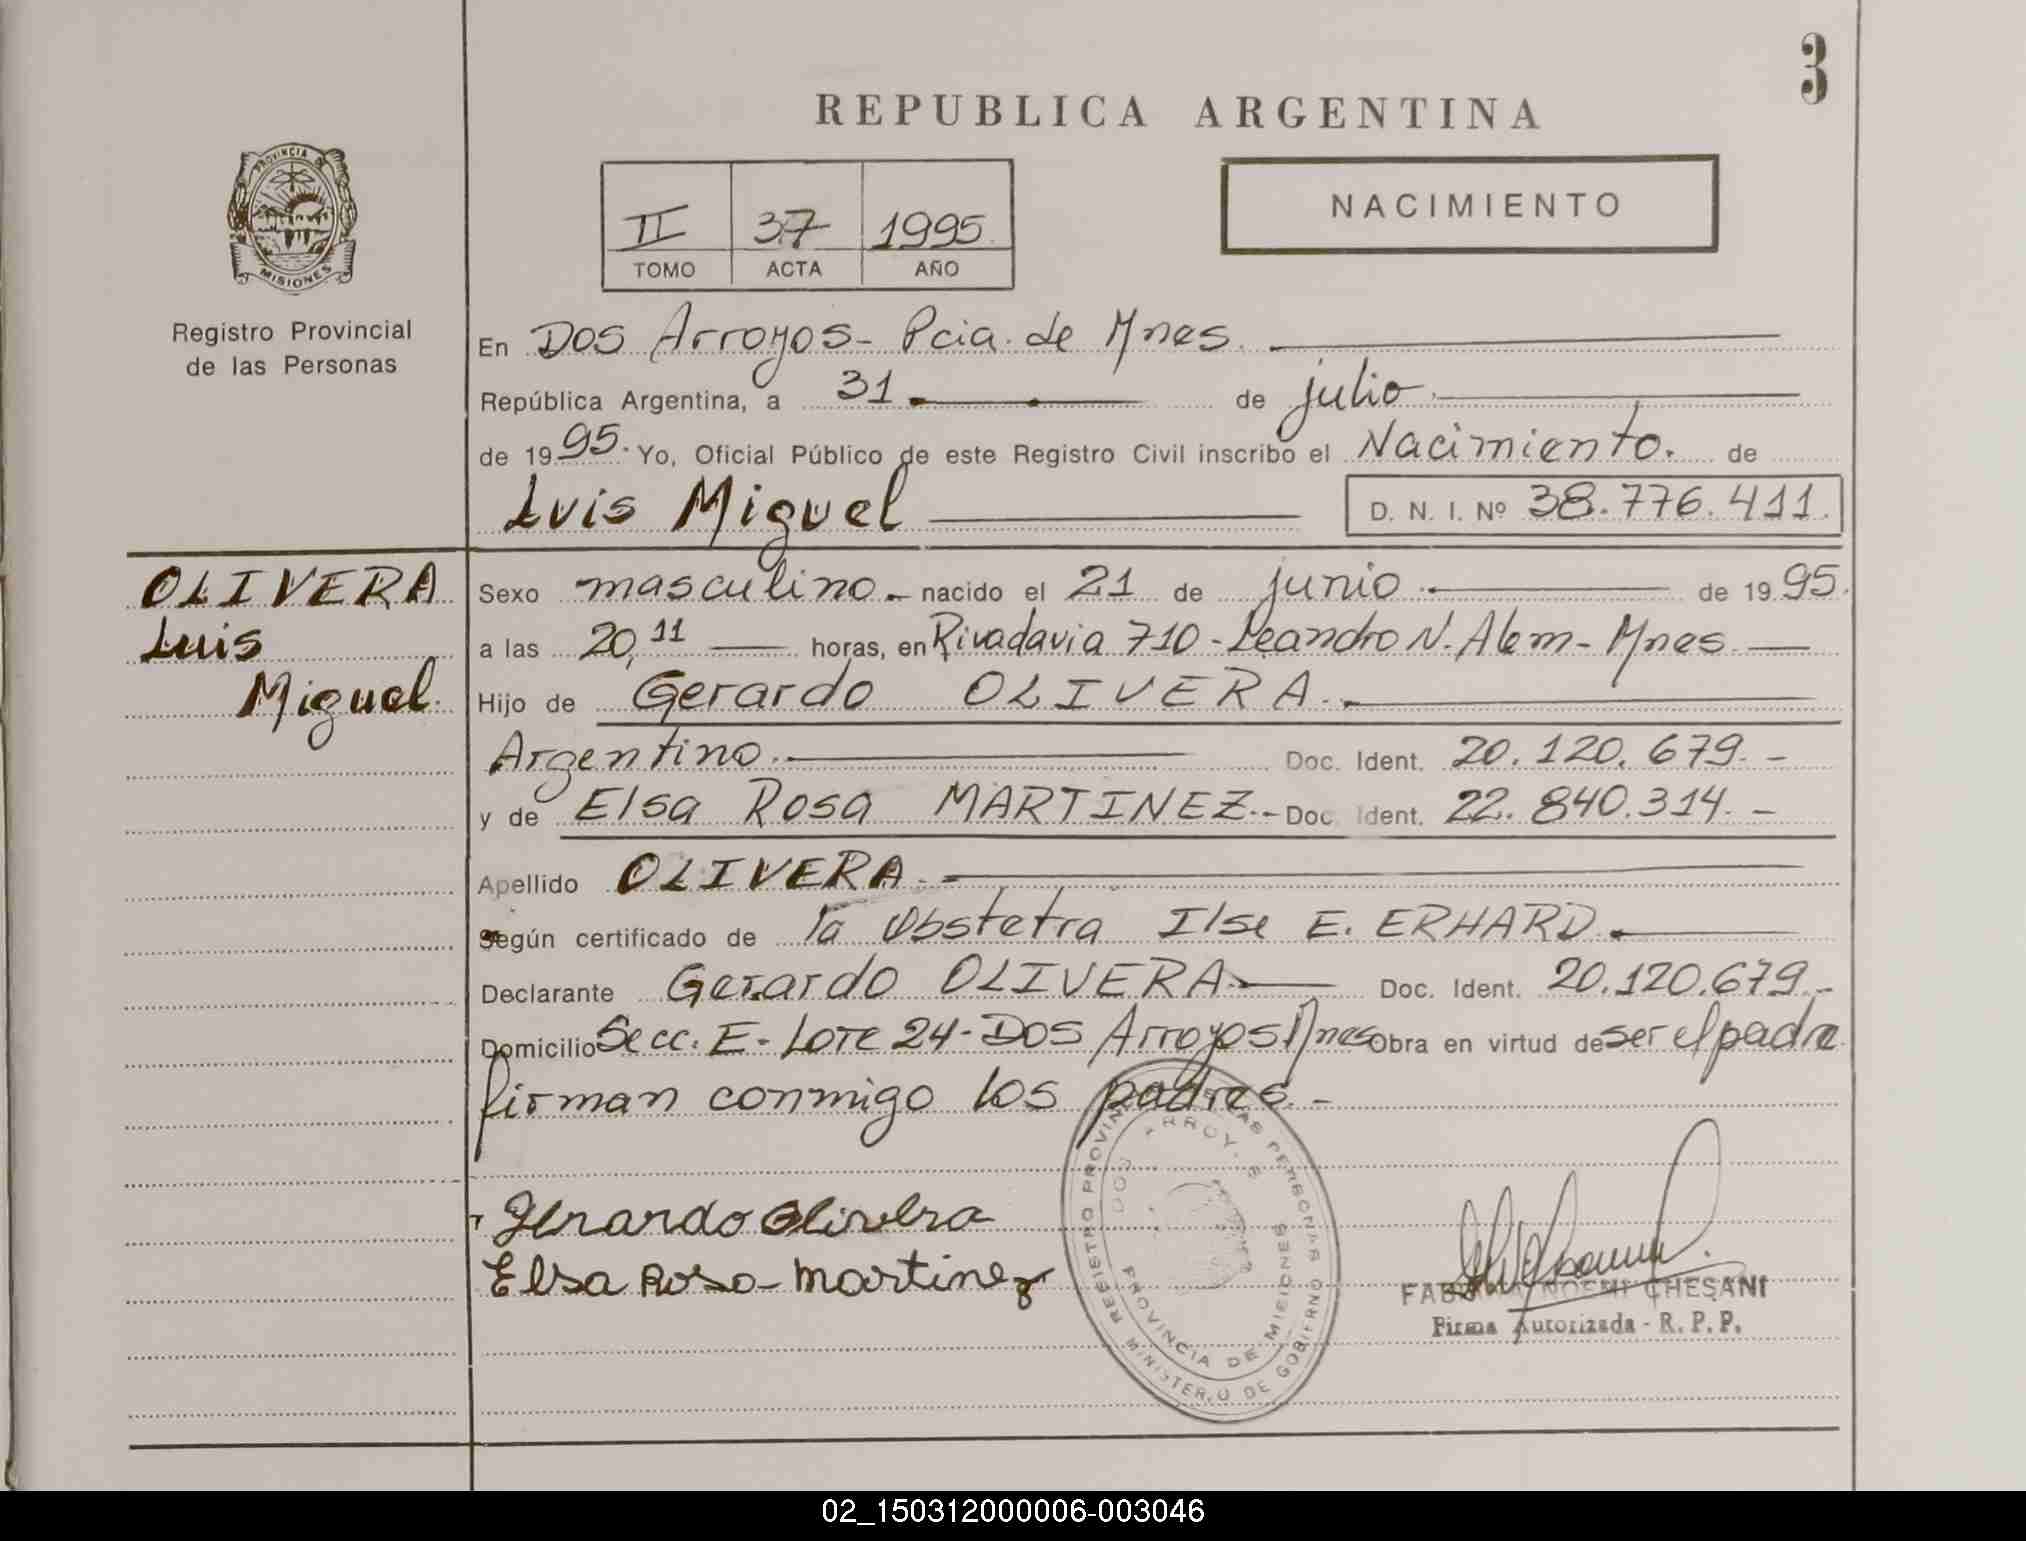 3
REPUBLICA ARGENTINA
PROVINCIA DE
MISIONES
Registro Provincial
de las Personas
II 37 1995
TOMO ACTA AÑO
NACIMIENTO
En Dos Arroyos- Pcia. de Mnes.
República Argentina, a 31 de julio
de 1995. Yo, Oficial Público de este Registro Civil inscribo el Nacimiento. de
Luis Miguel D. N. I. Nº 38.776.411.
OLIVERA
Luis
Miguel.
Sexo masculino.- nacido el 21 de junio de 1995.
a las 20,11 horas, en Rivadavia 710 - Leandro N. Alem - Mnes.
Hijo de Gerardo OLIVERA.
Argentino. Doc. Ident. 20.120.679.-
y de Elsa Rosa MARTINEZ.- Doc. Ident. 22.840.314.-
Apellido OLIVERA.
Según certificado de la Obstetra Ilse E. ERHARD.
Declarante Gerardo OLIVERA Doc. Ident. 20.120.679.-
Domicilio Secc. E- Lote 24- Dos Arroyos Mnes Obra en virtud de ser el padre
firman conmigo los padres.-
Gerardo Olivera
Elsa Rosa-Martinez
REGISTRO PROVINCIAL DE LAS PERSONAS
DOS ARROYOS
PROVINCIA DE MISIONES
MINISTERIO DE GOBIERNO
NOEMI CHESANI
Firma Autorizada - R. P. P.
02_150312000006-003046